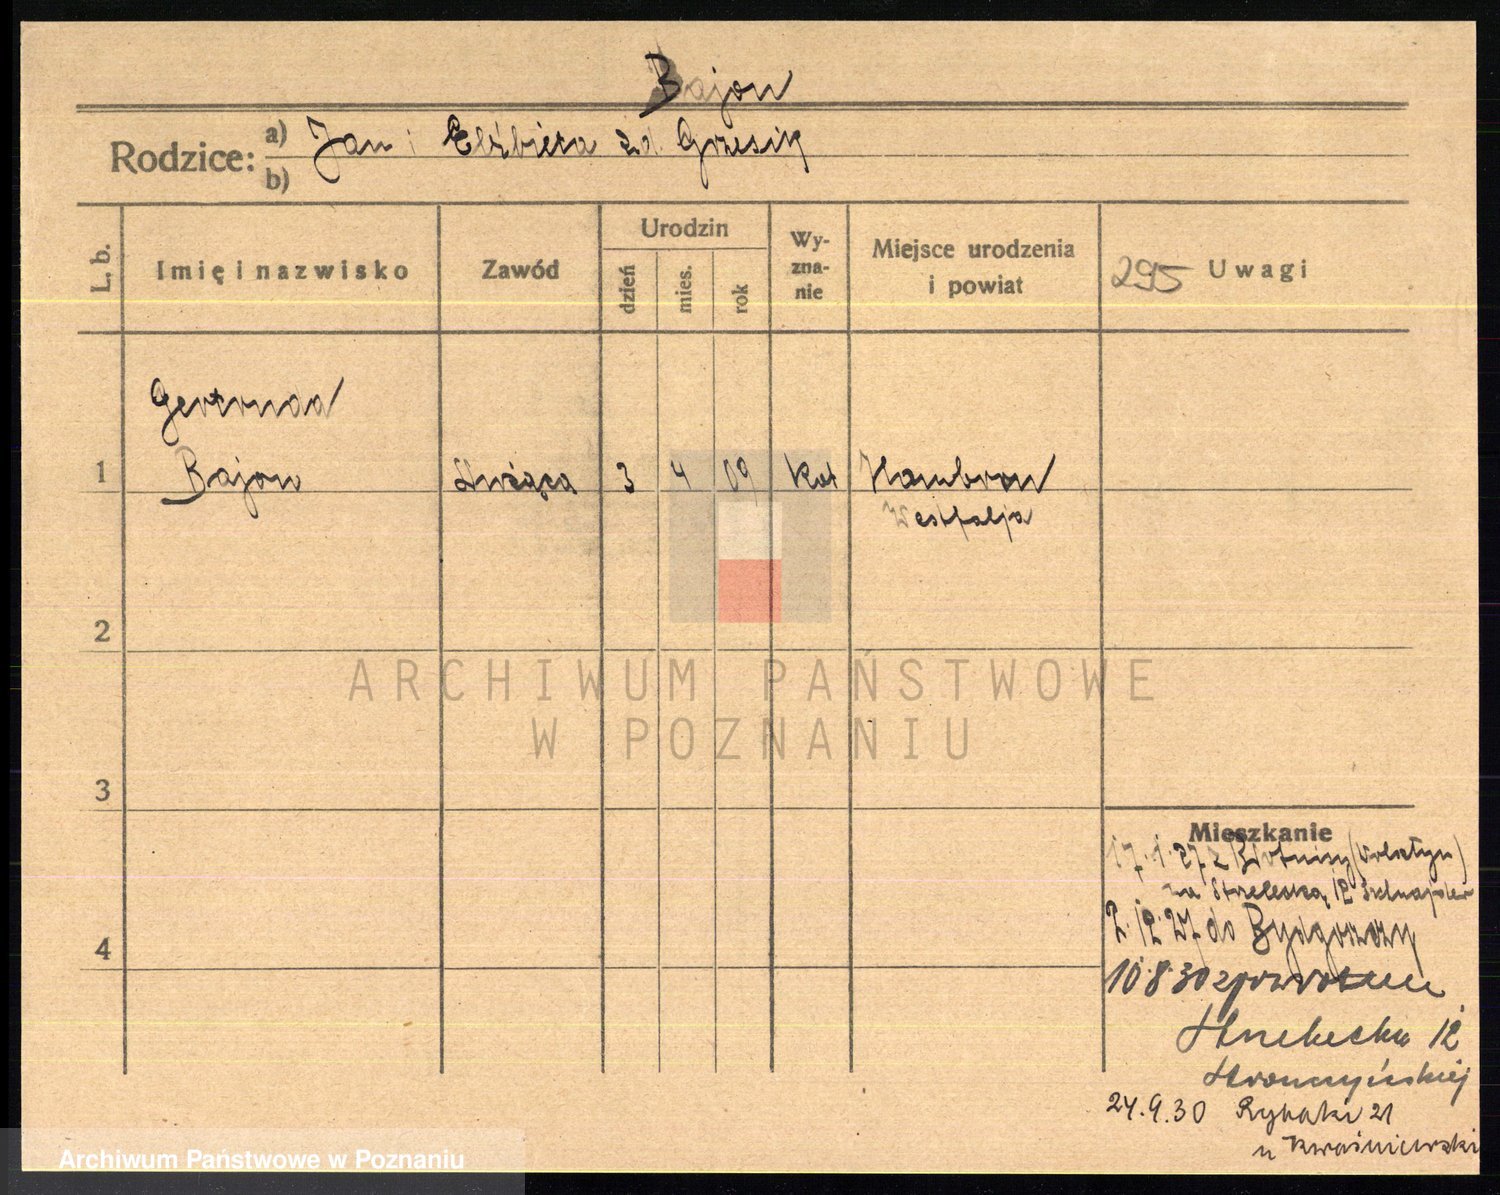 Bajon
Rodzice: a) Jan i Elżbieta zd. Grzesik
b)
L. b.
Imię i nazwisko
Zawód
Urodzin
dzień
mies.
rok
Wy-
zna-
nie
Miejsce urodzenia
i powiat
295 Uwagi
Gertruda
1 Bajon Służąca 3 4 09 kat Hambron
Westfalja
2
3
4
ARCHIWUM PAŃSTWOWE
W POZNANIU
Mieszkanie
17.1.27 z
na Strzelecką 12 Sznajder
2.12.27 do Bydgoszczy
10.8.30 zpowrotem
Strzelecka 12
24.9.30 Rybaki 21
u Kwaśniewski
Archiwum Państwowe w Poznaniu